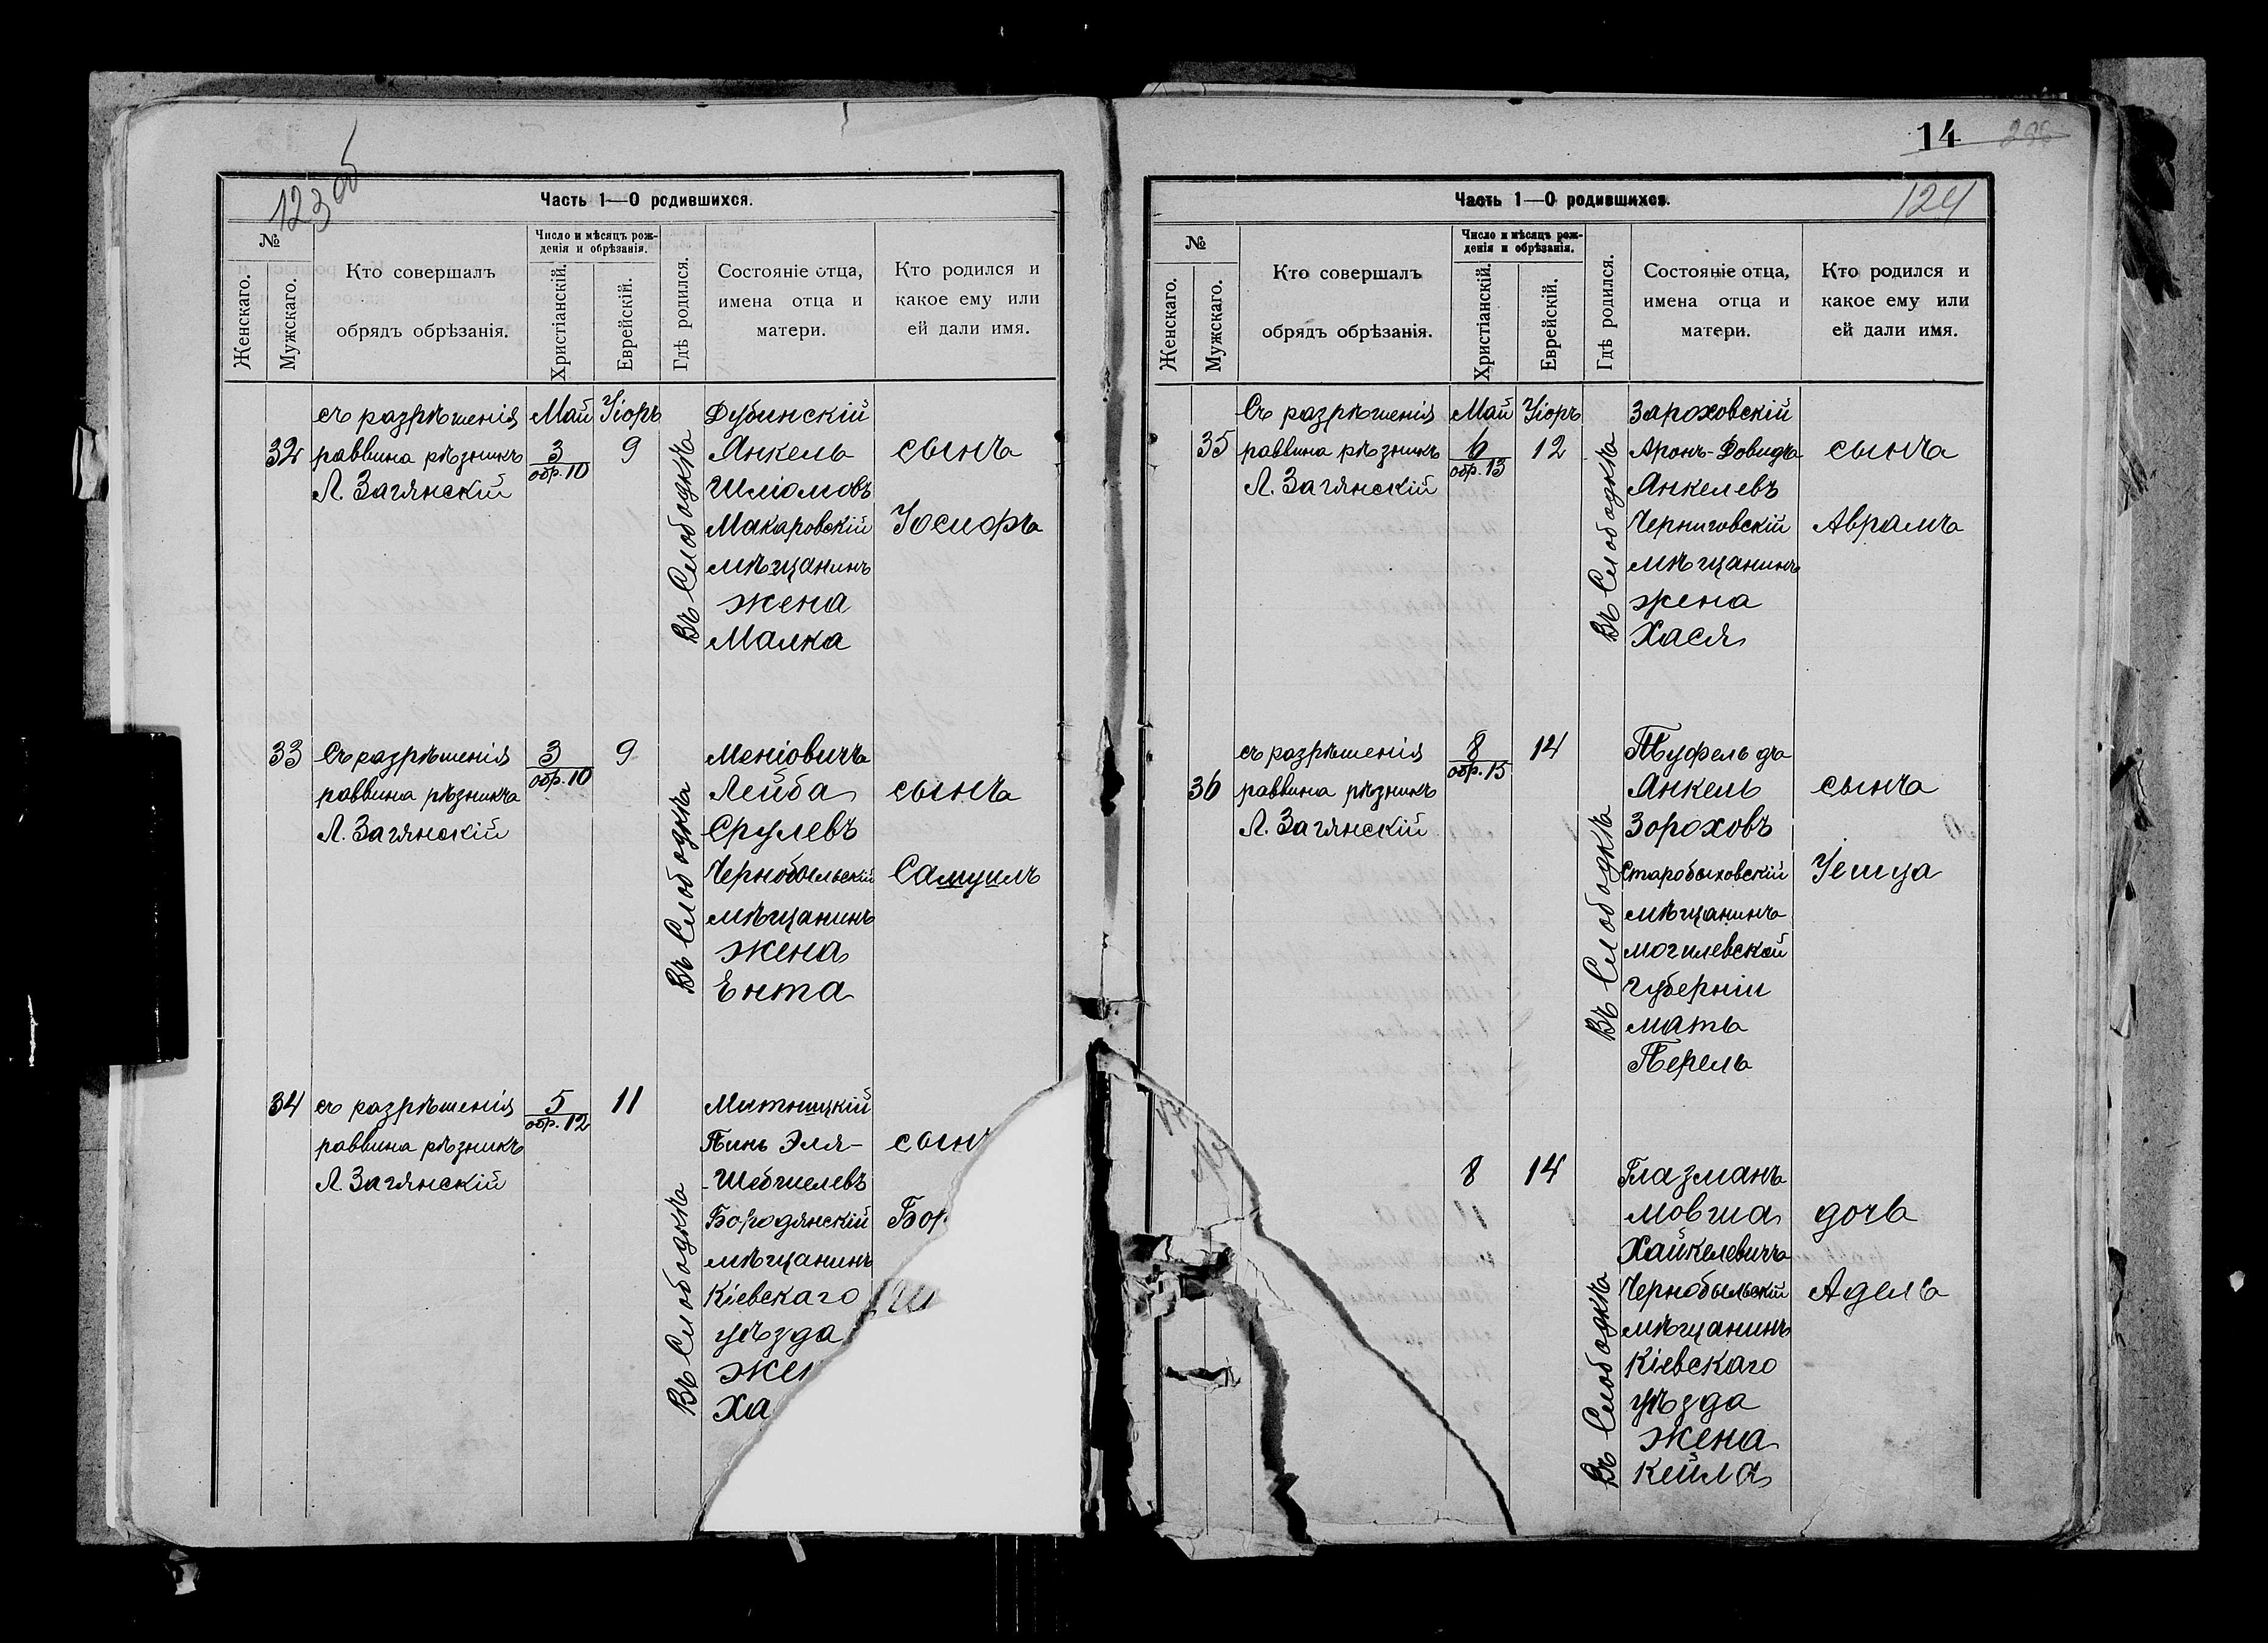 123 об
Часть 1—О родившихся.
№
Женскаго.
Мужскаго.
Кто совершалъ
обрядъ обрѣзанія.
Число и мѣсяцъ рож-
денія и обрѣзанія.
Христіанскій.
Еврейскій.
Гдѣ родился.
Состояніе отца,
имена отца и
матери.
Кто родился и
какое ему или
ей дали имя.
32
съ разрѣшенія
раввина рѣзникъ
Л. Загянскій
Май
3
обр. 10
Уіоръ
9
Въ Слободкѣ
Дубинскій
Янкель
Шліомовъ
Макаровскій
мѣщанинъ
жена
Малка
сынъ
Іосифъ
33
Съ разрѣшенія
раввина рѣзникъ
Л. Загянскій
3
обр. 10
9
Въ Слободкѣ
Меніовичъ
Лейба
Срулевъ
Чернобыльскій
мѣщанинъ
жена
Ента
сынъ
Самуилъ
34
съ разрѣшенія
раввина рѣзникъ
Л. Загянскій
5
обр. 12
11
Въ Слободкѣ
Митницкій
Пинь Эля-
Бородянскій
мѣщанинъ
Кіевскаго
уѣзда
жен
Ха
сын
Бор
14
124
Часть 1—О родившихся.
№
Женскаго.
Мужскаго.
Кто совершалъ
обрядъ обрѣзанія.
Число и мѣсяцъ рож-
денія и обрѣзанія.
Христіанскій.
Еврейскій.
Гдѣ родился.
Состояніе отца,
имена отца и
матери.
Кто родился и
какое ему или
ей дали имя.
35
Съ разрѣшенія
раввина рѣзникъ
Л. Загянскій
Май
6
обр. 13
Уіоръ
12
Въ Слободкѣ
Зароховскій
Аронъ-Довидъ
Янкелевъ
Черниговскій
мѣщанинъ
жена
Хася
сынъ
Аврамъ
36
съ разрѣшенія
раввина рѣзникъ
Л. Загянскій
8
обр. 15
14
Въ Слободкѣ
Туфельдъ
Янкель
Зороховъ
Старобыховскій
мѣщанинъ
могилевской
губерніи
мать
Перель
сынъ
Іешуа
8
14
Въ Слободкѣ
Глазманъ
Мовша
Хайкелевичъ
Чернобыльскій
мѣщанинъ
Кіевскаго
уѣзда
жена
Кейла
дочь
Адель